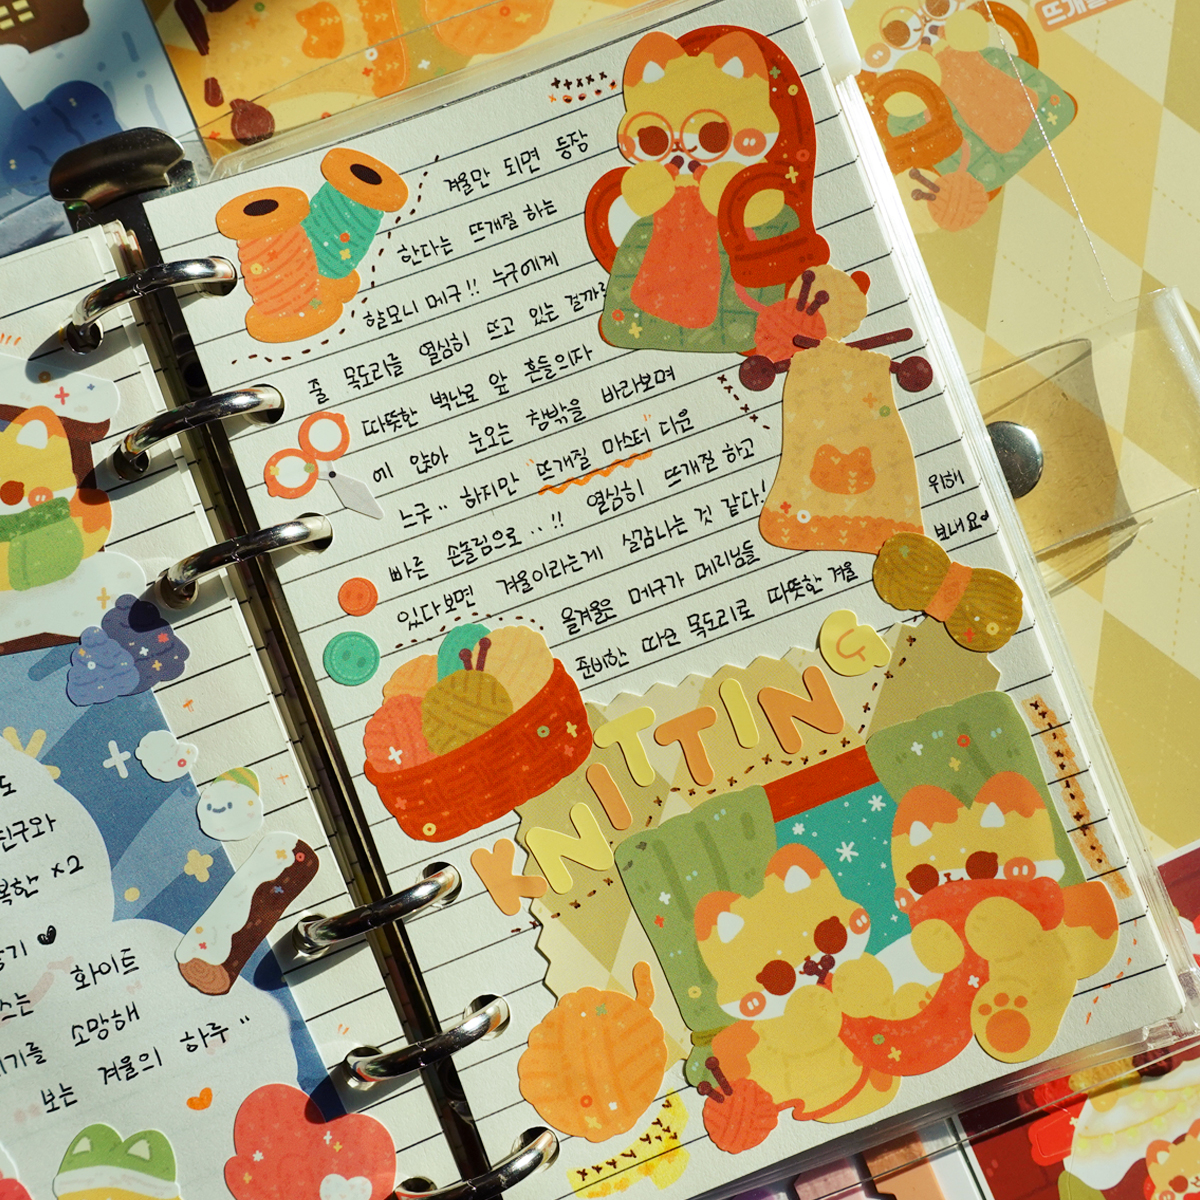 뜨개질
겨울만 되면 등장
한다는 뜨개질 하는
할모니 메구!! 누구에게
줄 목도리를 열심히 뜨고 있는 걸까?
따뜻한 벽난로 앞 흔들의자
에 앉아 눈오는 창밖을 바라보며
느긋.. 하지만 "뜨개질 마스터" 다운
빠른 손놀림으로..!! 열심히 뜨개질 하고
있다보면 겨울이라는게 실감나는 것 같다!
올겨울은 메구가 메리님들 위해
준비한 따순 목도리로 따뜻한 겨울 보내요
KNITTING
도
친구와
복한 x2
기
화이트
스는 소망해
기를
보는 겨울의 하루"